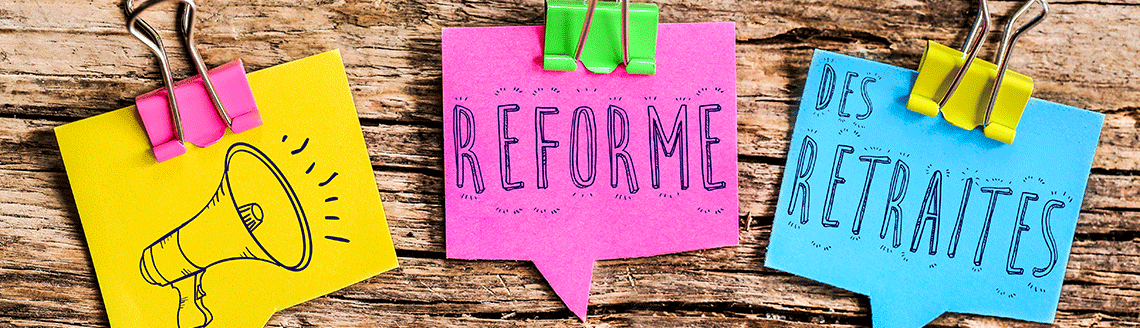 REFORME
DES
RETRAITES